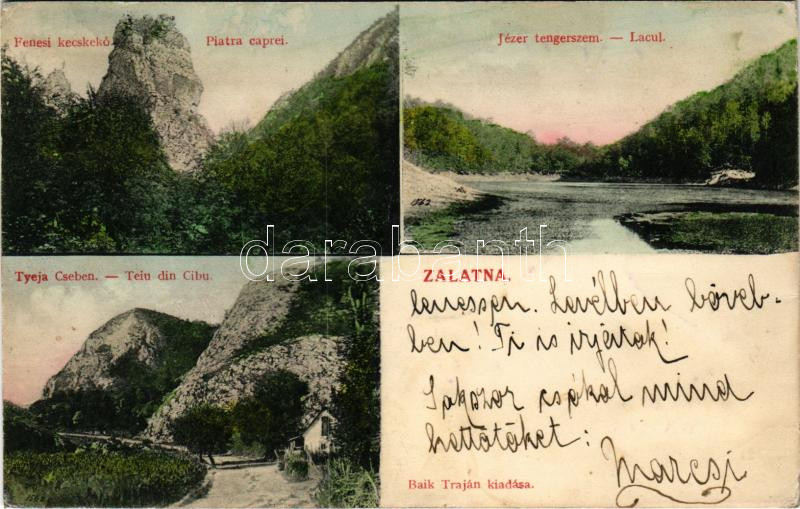 Fenesi kecskekő. Piatra caprei.
Jézer tengerszem. — Lacul.
1562
darabanth
Tyeja Cseben. — Teiu din Cibu.
ZALATNA.
lenessen. Levélben bőveb-
ben! Ti is irjatok!
Sokszor csókol mind
kettőtöket:
Marcsi
Baik Traján kiadása.
1562